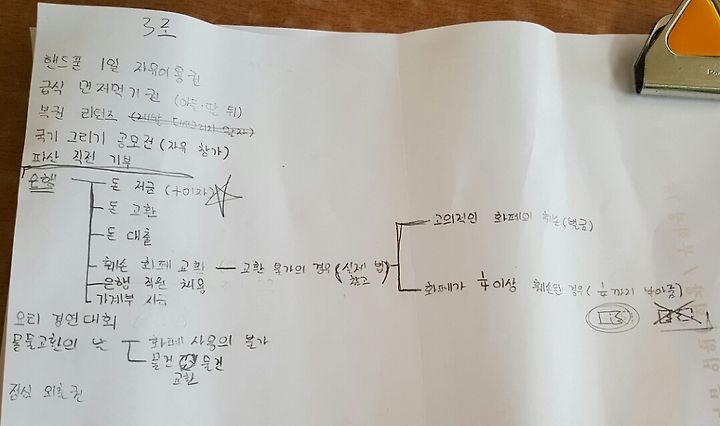 3로
핸드폰 1일 자유이용권
급식 먼저먹기권 (아동·딴 뒤)
복권 리턴즈
국기 그리기 공모전 (자유 참가)
파산 직전 기부
은행
돈 저금 (+이자)
돈 교환
돈 대출
훼손 화폐 교환 - 교환 불가의 경우 (실제 법 참고)
고의적인 화폐의 훼손 (벌금)
화폐가 1/4 이상 훼손된 경우 (1/4까지 봐줌)
은행 직원 채용
가계부
요리 경연대회
물물교환의 날
화폐 사용의 불가
물건 물건
교환
점심 외출권